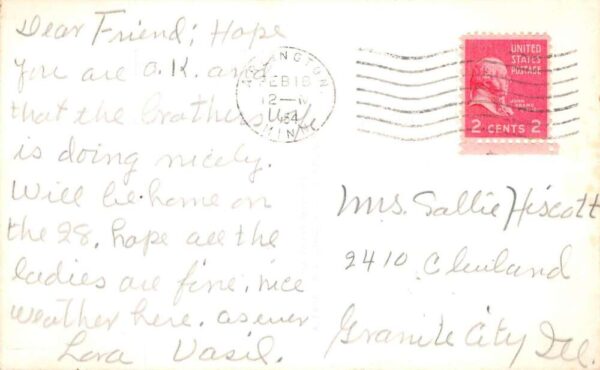 Dear Friend; Hope
you are O.K. and
that the brothers
is doing nicely.
Will be home on
the 28. hope all the
ladies are fine. nice
weather here. as ever
Lora Vasil.
FEB 18
12-M
MINN.
UNITED
STATES
POSTAGE
JOHN
ADAMS
2 CENTS 2
Mrs. Sallie Hiscott
2410 Cleiland
Granite City Ill.